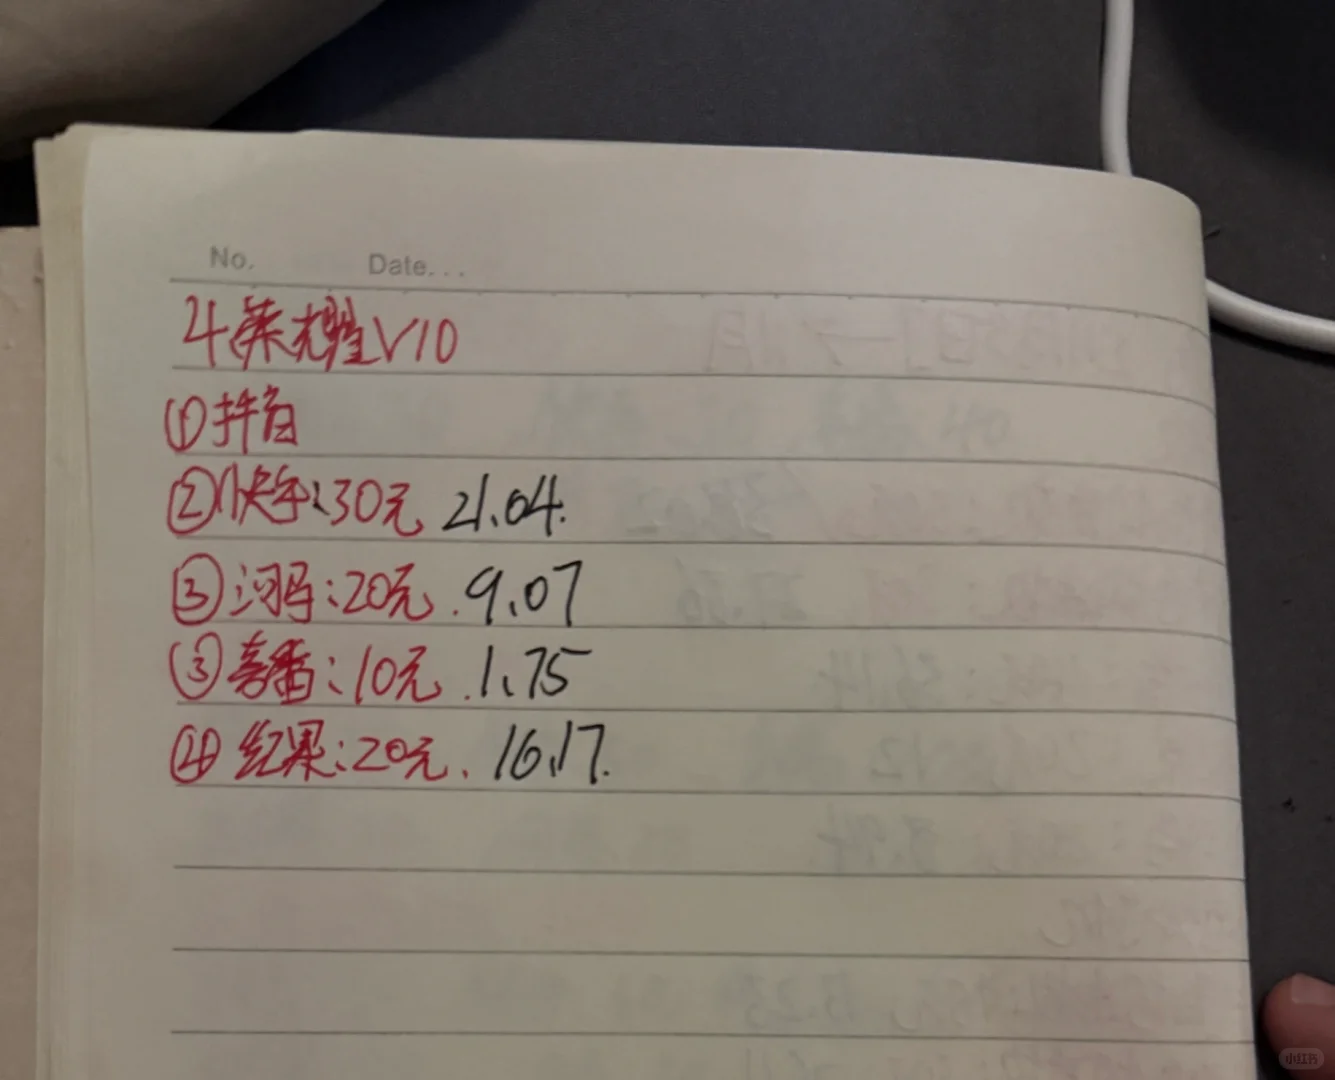 No. Date...
4荣耀V10
①抖音
②快手:30元 21.04.
③河马:20元.9.07
③喜番:10元.1.75
④红果:20元.16.17.
小红书